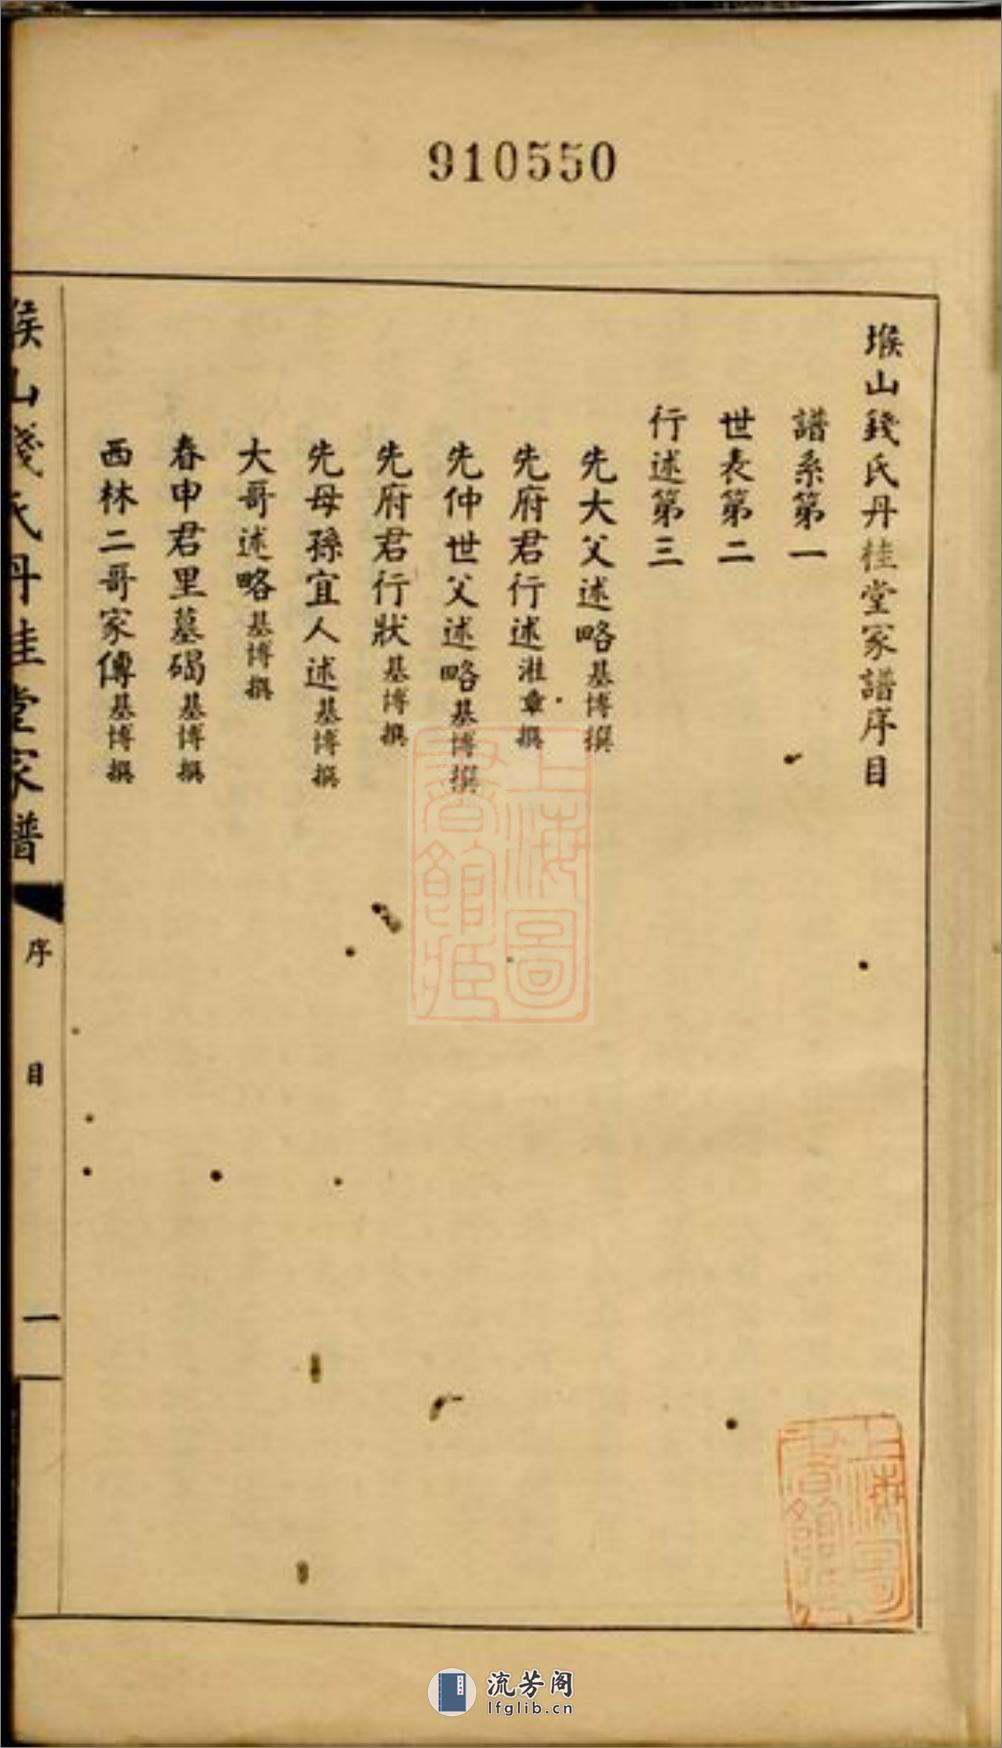 910550
堠山錢氏丹桂堂家譜序目
譜系第一
世表第二
行述第三
先大父述略基博撰
先府君行述湴章撰
先仲世父述略基博撰
先府君行狀基博撰
先母孫宜人述基博撰
大哥述略基博撰
春申君里墓碣基博撰
西林二哥家傳基博撰
堠山錢氏丹桂堂家譜
序目
一
上海圖書館藏
上海圖書館藏
流芳阁
lfglib.cn